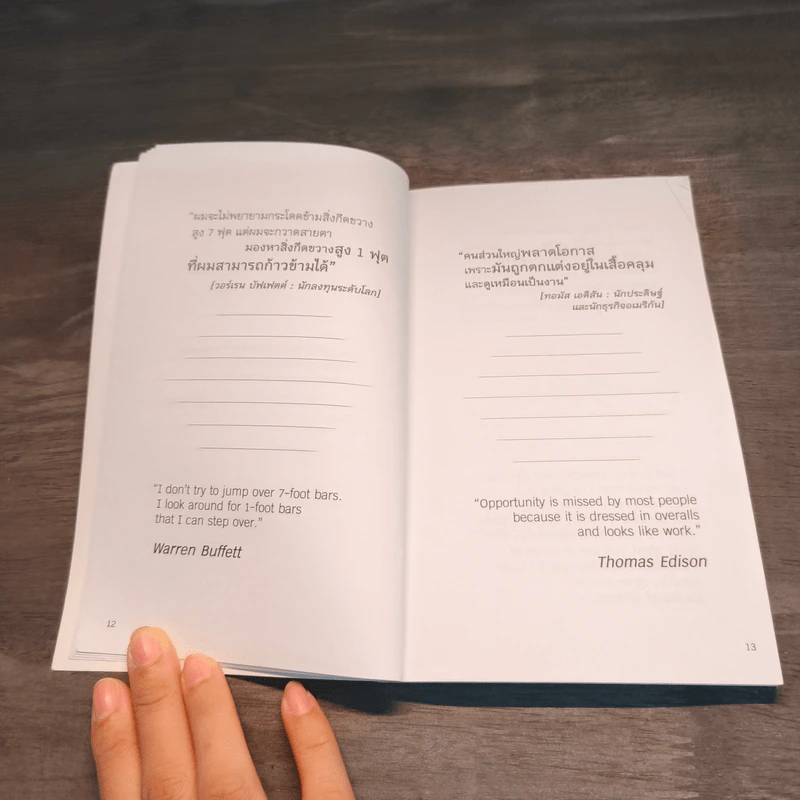 "ผมจะไม่พยายามกระโดดข้ามสิ่งกีดขวาง
สูง 7 ฟุต แต่ผมจะกวาดสายตา
มองหาสิ่งกีดขวางสูง 1 ฟุต
ที่ผมสามารถก้าวข้ามได้"
[วอร์เรน บัฟเฟตต์ : นักลงทุนระดับโลก]
"I don't try to jump over 7-foot bars.
I look around for 1-foot bars
that I can step over."
Warren Buffett
12
"คนส่วนใหญ่พลาดโอกาส
เพราะมันถูกตกแต่งอยู่ในเสื้อคลุม
และดูเหมือนเป็นงาน"
[ทอมัส เอดิสัน : นักประดิษฐ์
และนักธุรกิจอเมริกัน]
"Opportunity is missed by most people
because it is dressed in overalls
and looks like work."
Thomas Edison
13